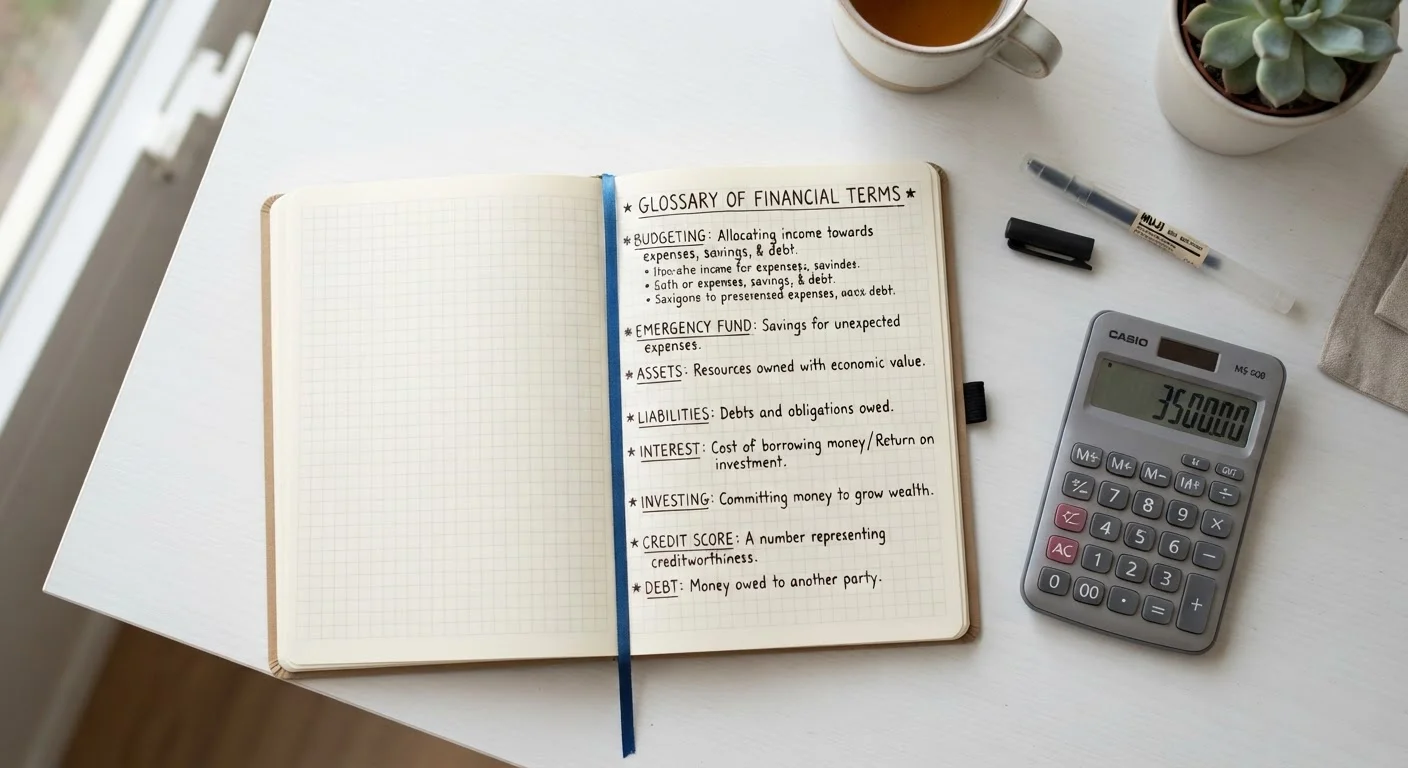 ★ GLOSSARY OF FINANCIAL TERMS ★
* BUDGETING: Allocating income towards
expenses, savings, & debt.
• income for expenses, savindes.
• Sath or expenses, savings, & debt.
• Saxigons to expenses, debt.
* EMERGENCY FUND: Savings for unexpected
expenses.
* ASSETS: Resources owned with economic value.
★ LIABILITIES: Debts and obligations owed.
★ INTEREST: Cost of borrowing money/Return on
investment.
★ INVESTING: Committing money to grow wealth.
★ CREDIT SCORE: A number representing
creditworthiness.
★ DEBT: Money owed to another party.
MUJI
CASIO
350000
M+ M- 
7 8 9 ÷
4 5 6 ×
AC 1 2 3 −
0 00 • = +